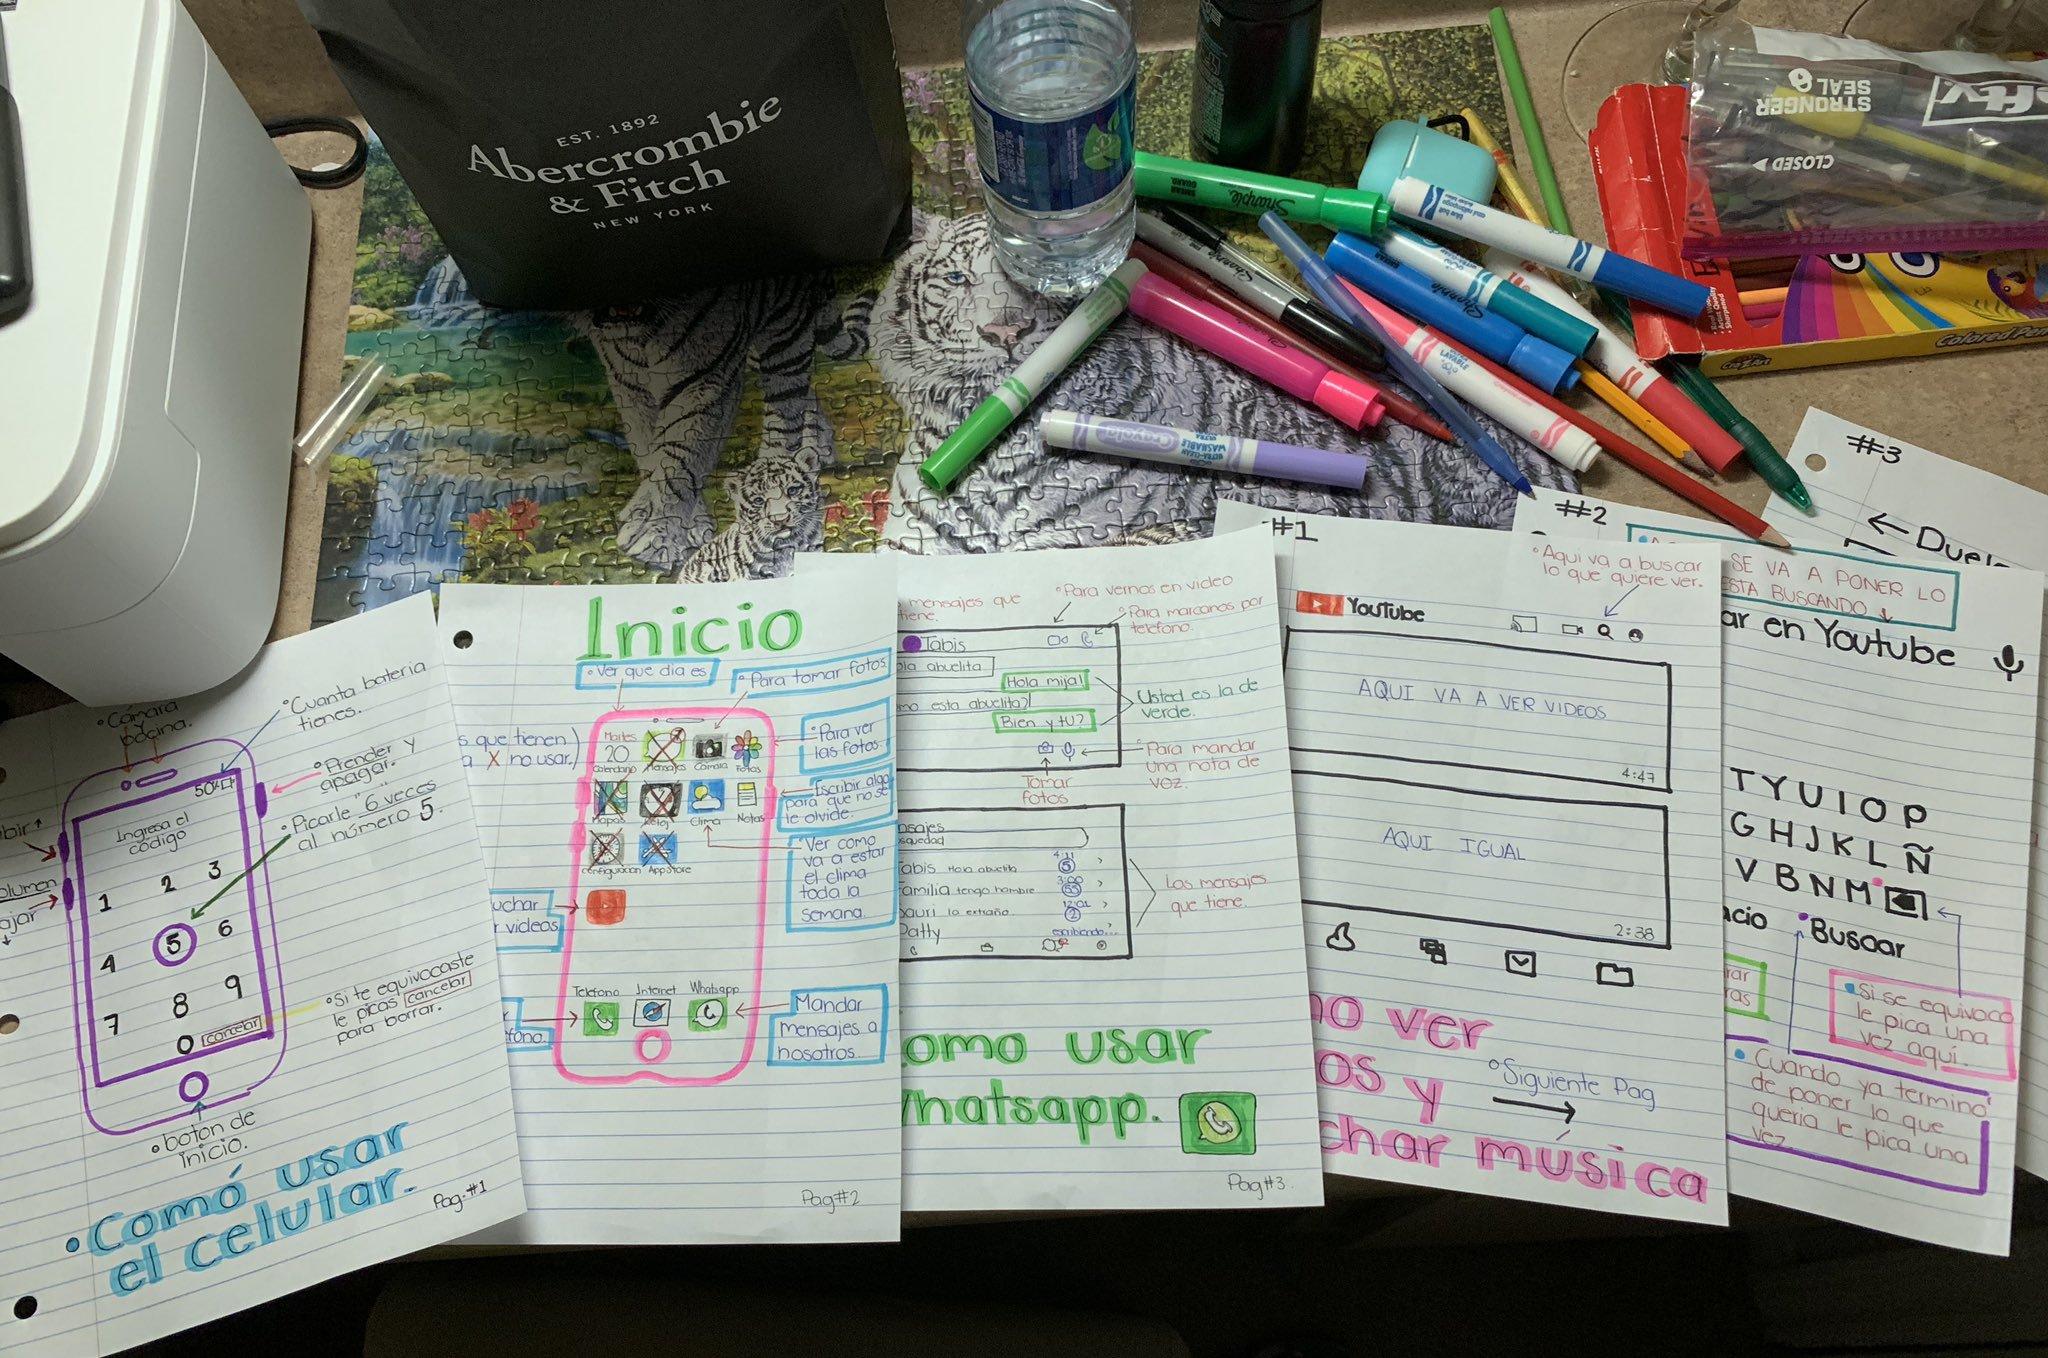 EST. 1892
Abercrombie
& Fitch
NEW YORK
Sharpie
SMEAR GUARD
Sharpie
Crayola
ULTRA-CLEAN
WASHABLE
STRONGER
SEAL
CLOSED
Colored
#3
← Duele
#2
SE VA A PONER LO
ESTA BUSCANDO ↓
ar en Youtube
T Y U I O P
G H J K L Ñ
V B N M
acio
Buscar
Si se equivoco
le pica una
vez aquí.
Cuando ya terminó
de poner lo que
quería le pica una
vez.
#1
Aqui va a buscar
lo que quiere ver.
Youtube
AQUI VA A VER VIDEOS
4:47
AQUI IGUAL
2:38
no ver
os y
char música
Siguiente Pag
mensajes que
tiene.
Para vernos en video
Para marcarnos por
telefono.
Tabis
la abuelita
Hola mija!
mo esta abuelita?
Bien y tU?
Usted es la de
verde.
Para mandar
una nota de
voz.
Tomar
fotos
nsajes
squedad
Tabis Hola abuelita
4:11
5
Familia tengo hambre
3:00
55
auri la extraño.
12:01
2
Patty
escribiendo...
Los mensajes
que tiene.
omo usar
Whatsapp.
Pag#3.
Inicio
Ver que dia es
Para tomar fotos.
s que tienen)
a X no usar.)
Martes
20
Calendario
Mensajes
Cámara
Fotos
Para ver
las fotos.
Mapas
Reloj
Clima
Notas
Escribir algo
para que no se
le olvide.
configuración
AppStore
Ver como
va a estar
el clima
toda la
semana.
uchar
r videos
Telefono
Internet
Whatsapp
fono.
Mandar
mensajes a
nosotros.
Pag#2
Cámara
y
bocina.
Cuanta bateria
tienes.
Prender y
apagar.
50%
Ingresa el
código
Picarle "6" veces
al número 5.
bir ↑
olumen
ajar
↓
1 2 3
4 5 6
7 8 9
0 cancelar
Si te equivocaste
le picas cancelar
para borrar.
boton de
inicio.
Comó usar
el celular.
Pag.#1